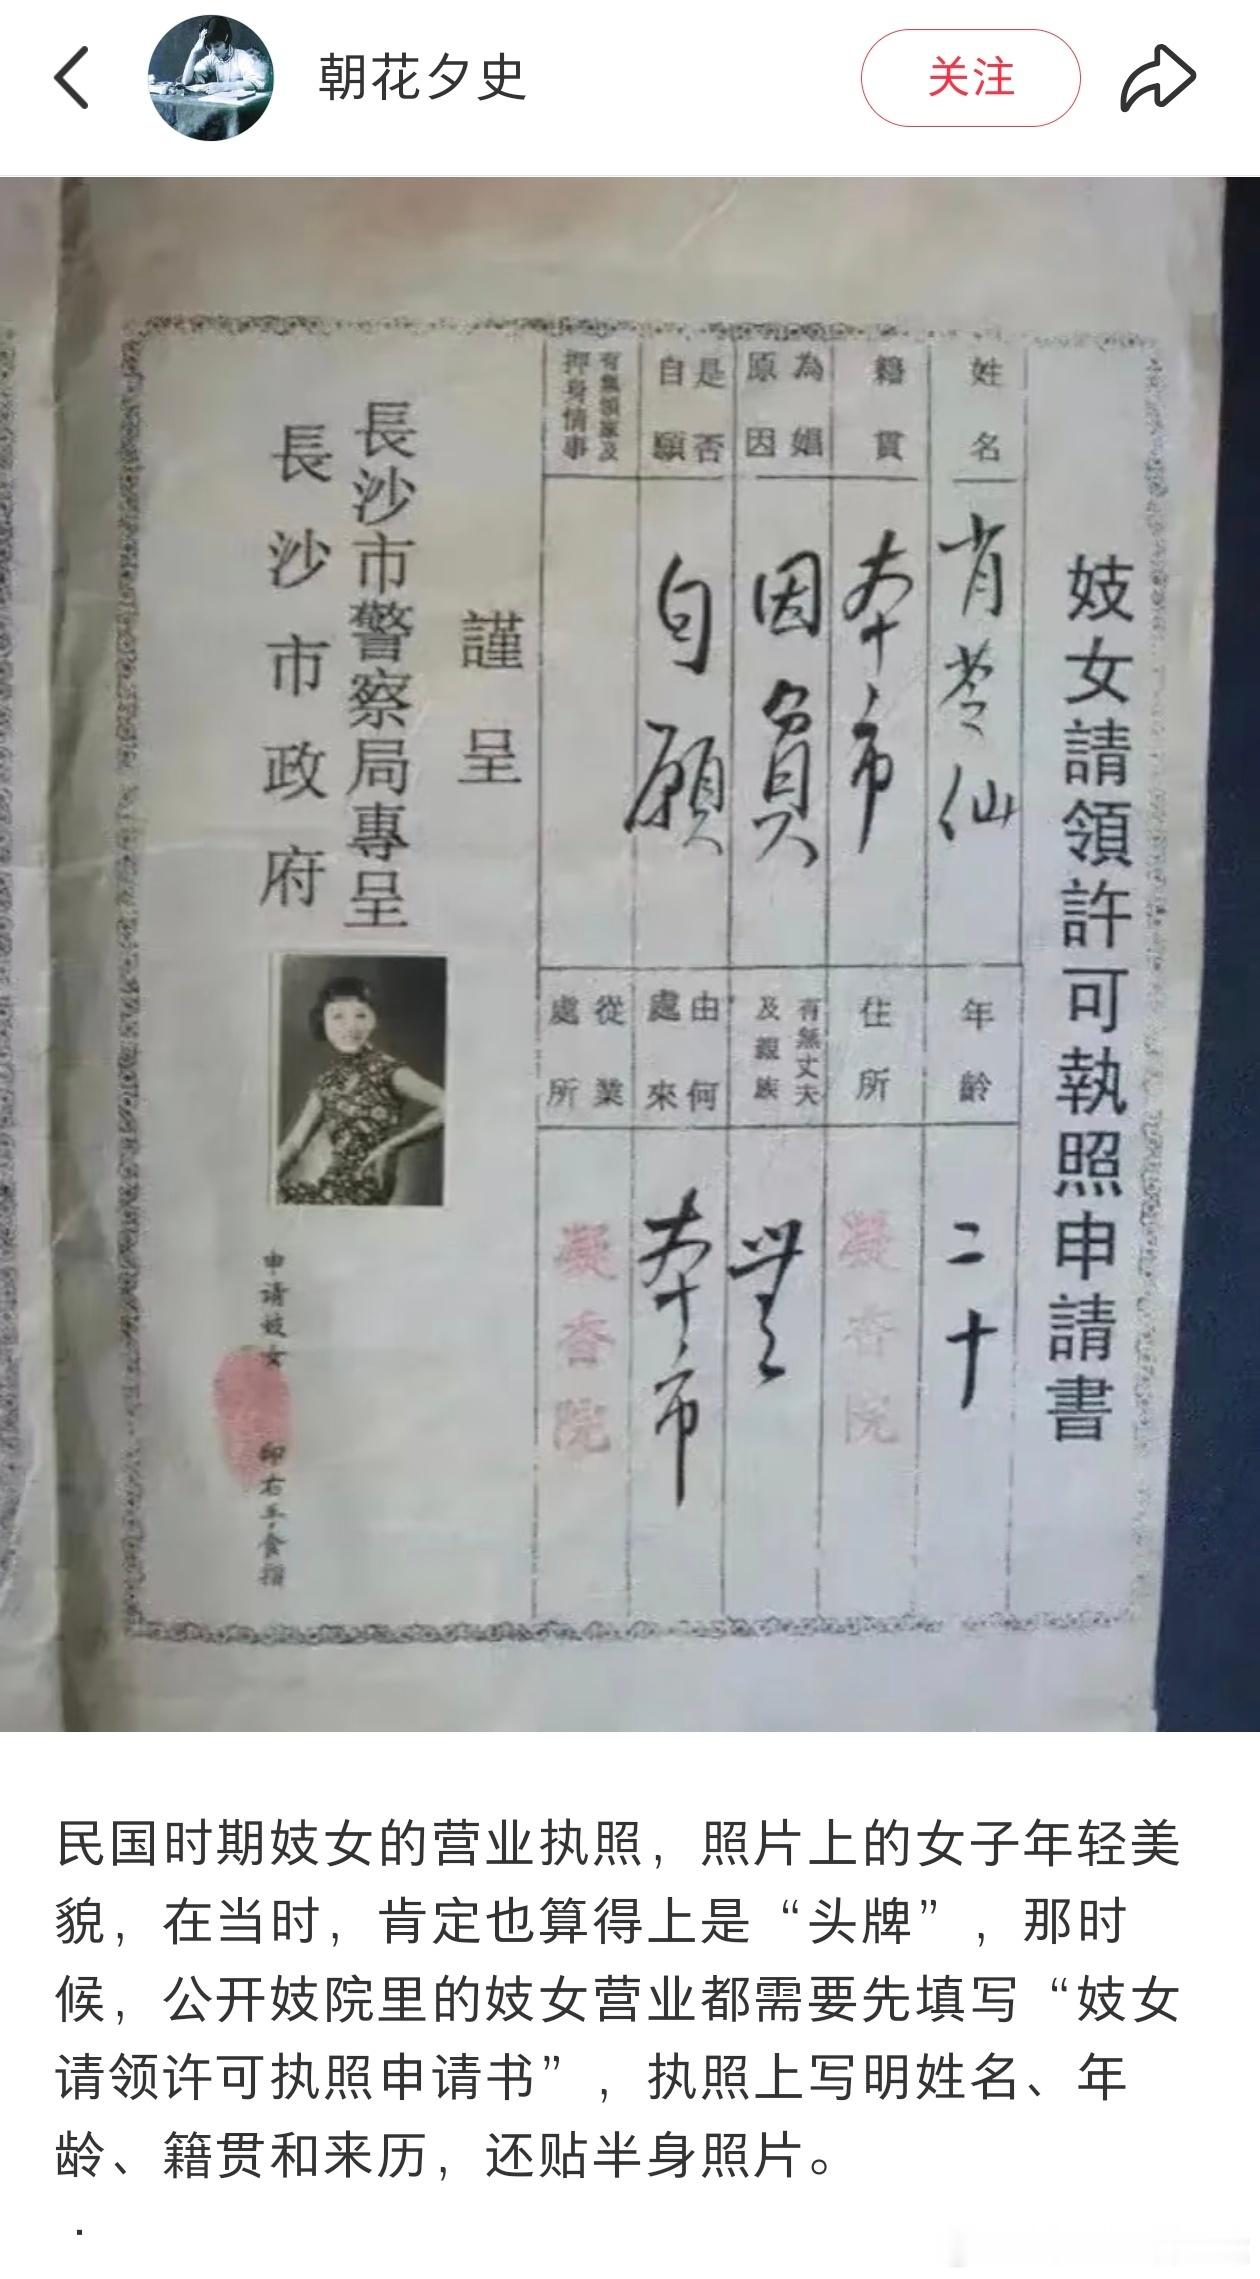 朝花夕史
关注
妓女請領許可執照申請書
姓名
肖苓仙
年齡
二十
籍貫
本市
住所
凝香院
為娼原因
因貧
有無丈夫及親族
無
是否自願
自願
由何處來
本市
有無領家及押身情事
從業處所
凝香院
謹呈
長沙市警察局專呈
長沙市政府
申请妓女 印右手食指
民国时期妓女的营业执照，照片上的女子年轻美
貌，在当时，肯定也算得上是“头牌”，那时
候，公开妓院里的妓女营业都需要先填写“妓女
请领许可执照申请书”，执照上写明姓名、年
龄、籍贯和来历，还贴半身照片。
.